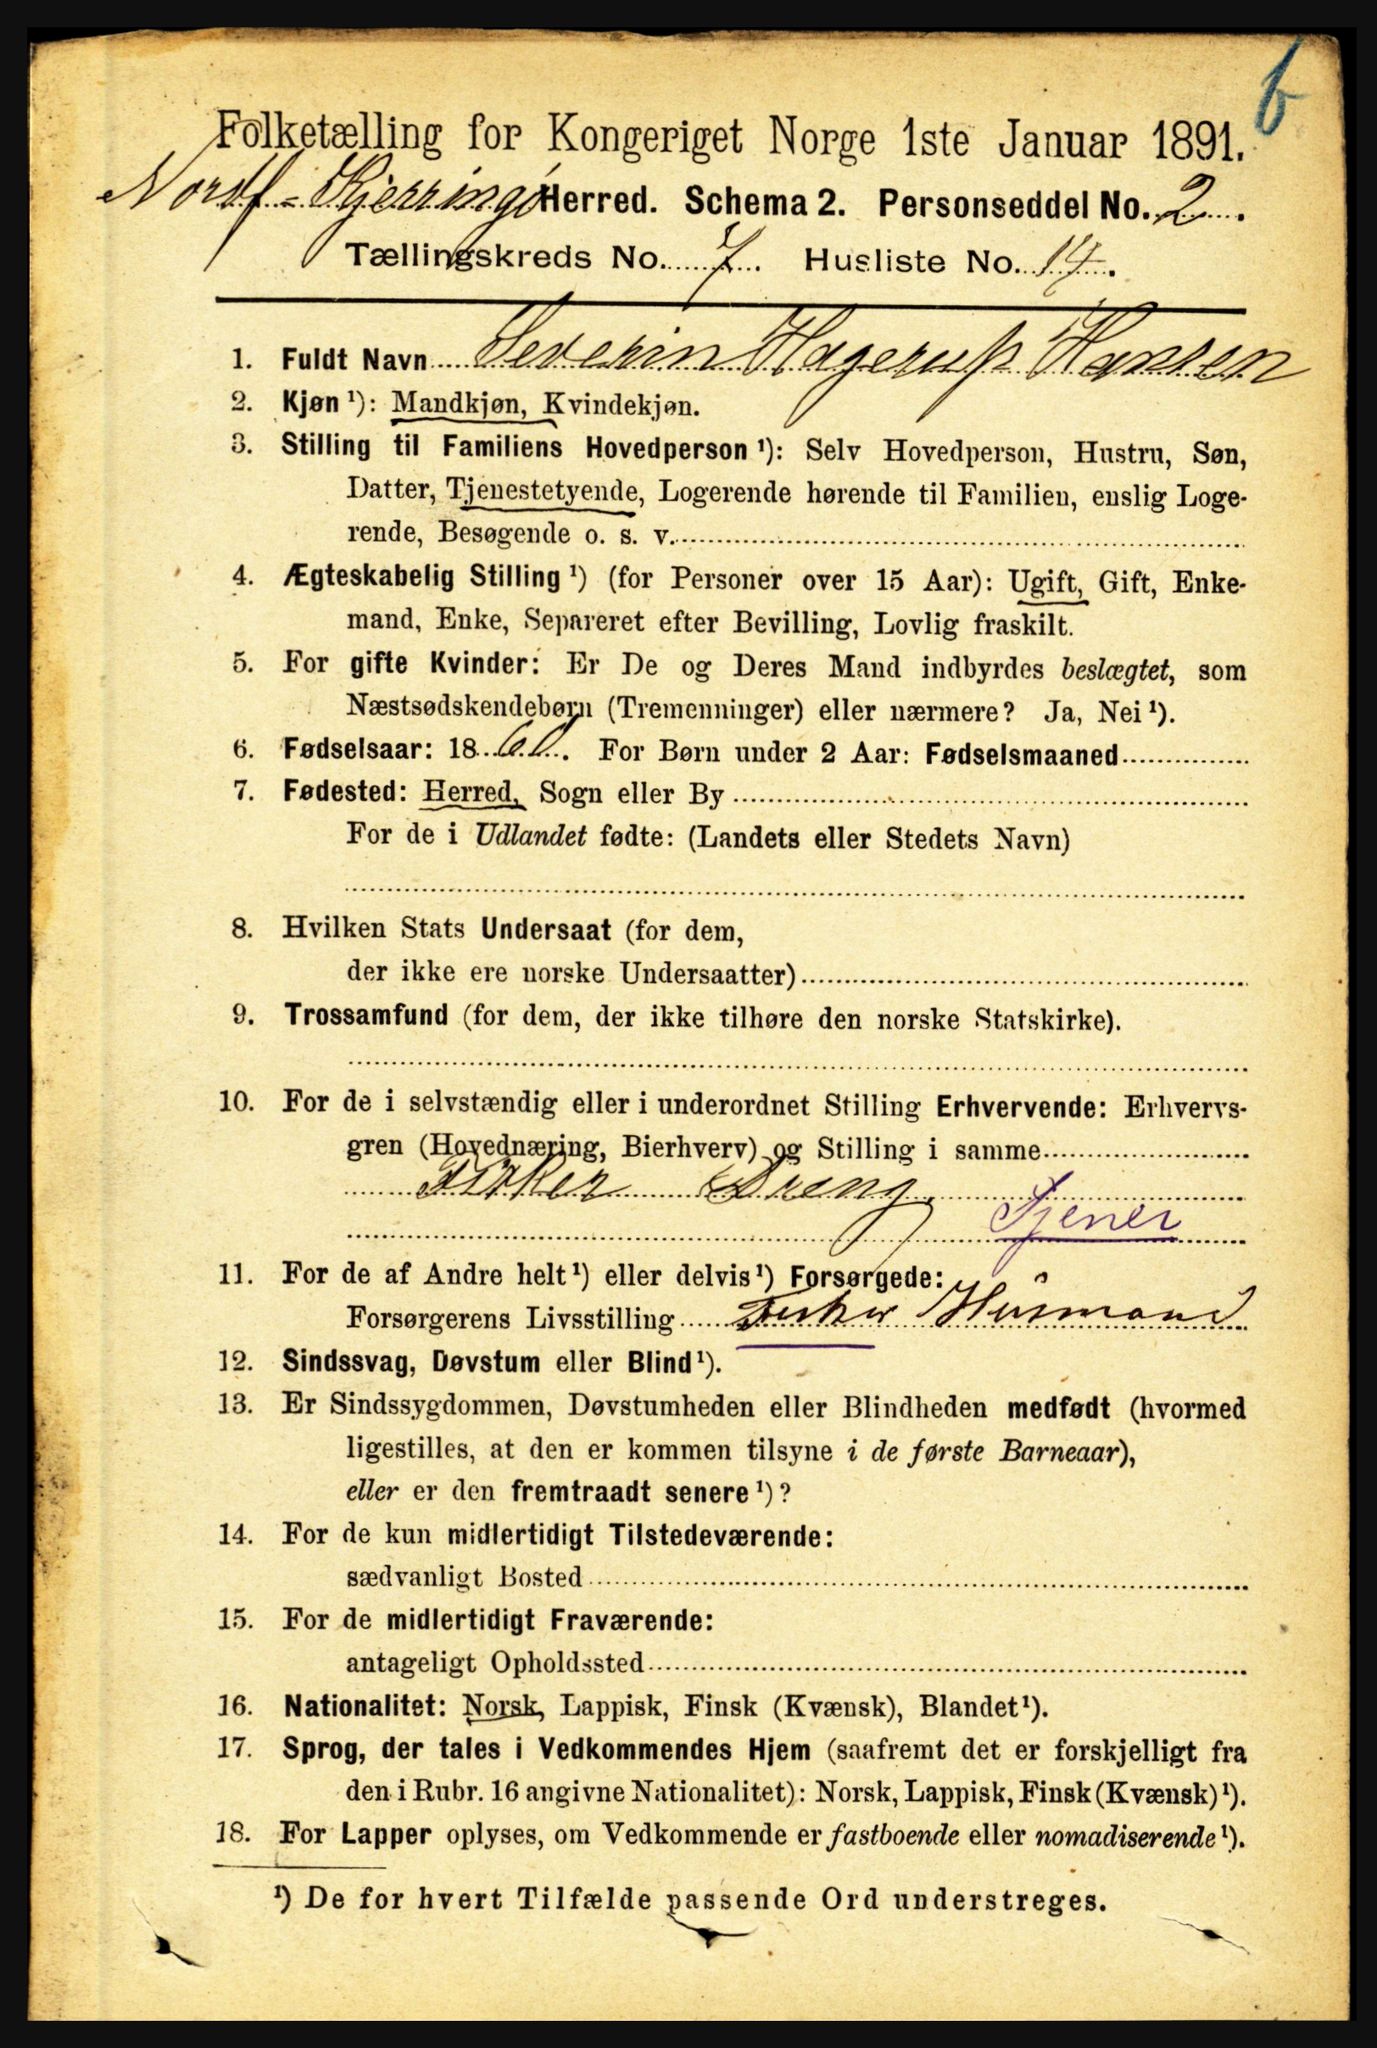 6
Folketælling for Kongeriget Norge 1ste Januar 1891.
Nordf-Kjerringø Herred. Schema 2. Personseddel No. 2.
Tællingskreds No. 7. Husliste No. 14.
1. Fuldt Navn Severin Hagerup Hansen
2. Kjøn ¹): Mandkjøn, Kvindekjøn.
3. Stilling til Familiens Hovedperson ¹): Selv Hovedperson, Hustru, Søn,
Datter, Tjenestetyende, Logerende hørende til Familien, enslig Loge-
rende, Besøgende o. s. v.
4. Ægteskabelig Stilling ¹) (for Personer over 15 Aar): Ugift, Gift, Enke-
mand, Enke, Separeret efter Bevilling, Lovlig fraskilt.
5. For gifte Kvinder: Er De og Deres Mand indbyrdes beslægtet, som
Næstsødskendebørn (Tremenninger) eller nærmere? Ja, Nei ¹).
6. Fødselsaar: 18 . For Børn under 2 Aar: Fødselsmaaned
7. Fødested: Herred, Sogn eller By
For de i Udlandet fødte: (Landets eller Stedets Navn)
8. Hvilken Stats Undersaat (for dem,
der ikke ere norske Undersaatter)
9. Trossamfund (for dem, der ikke tilhøre den norske Statskirke).
10. For de i selvstændig eller i underordnet Stilling Erhvervende: Erhvervs-
gren (Hovednæring, Bierhverv) og Stilling i samme
Fisker Dreng
Tjener
11. For de af Andre helt ¹) eller delvis ¹) Forsørgede:
Forsørgerens Livsstilling Fisker Husmand
12. Sindssvag, Døvstum eller Blind ¹).
13. Er Sindssygdommen, Døvstumheden eller Blindheden medfødt (hvormed
ligestilles, at den er kommen tilsyne i de første Barneaar),
eller er den fremtraadt senere ¹)?
14. For de kun midlertidigt Tilstedeværende:
sædvanligt Bosted
15. For de midlertidigt Fraværende:
antageligt Opholdssted
16. Nationalitet: Norsk, Lappisk, Finsk (Kvænsk), Blandet ¹).
17. Sprog, der tales i Vedkommendes Hjem (saafremt det er forskjelligt fra
den i Rubr. 16 angivne Nationalitet): Norsk, Lappisk, Finsk (Kvænsk) ¹).
18. For Lapper oplyses, om Vedkommende er fastboende eller nomadiserende ¹).
¹) De for hvert Tilfælde passende Ord understreges.